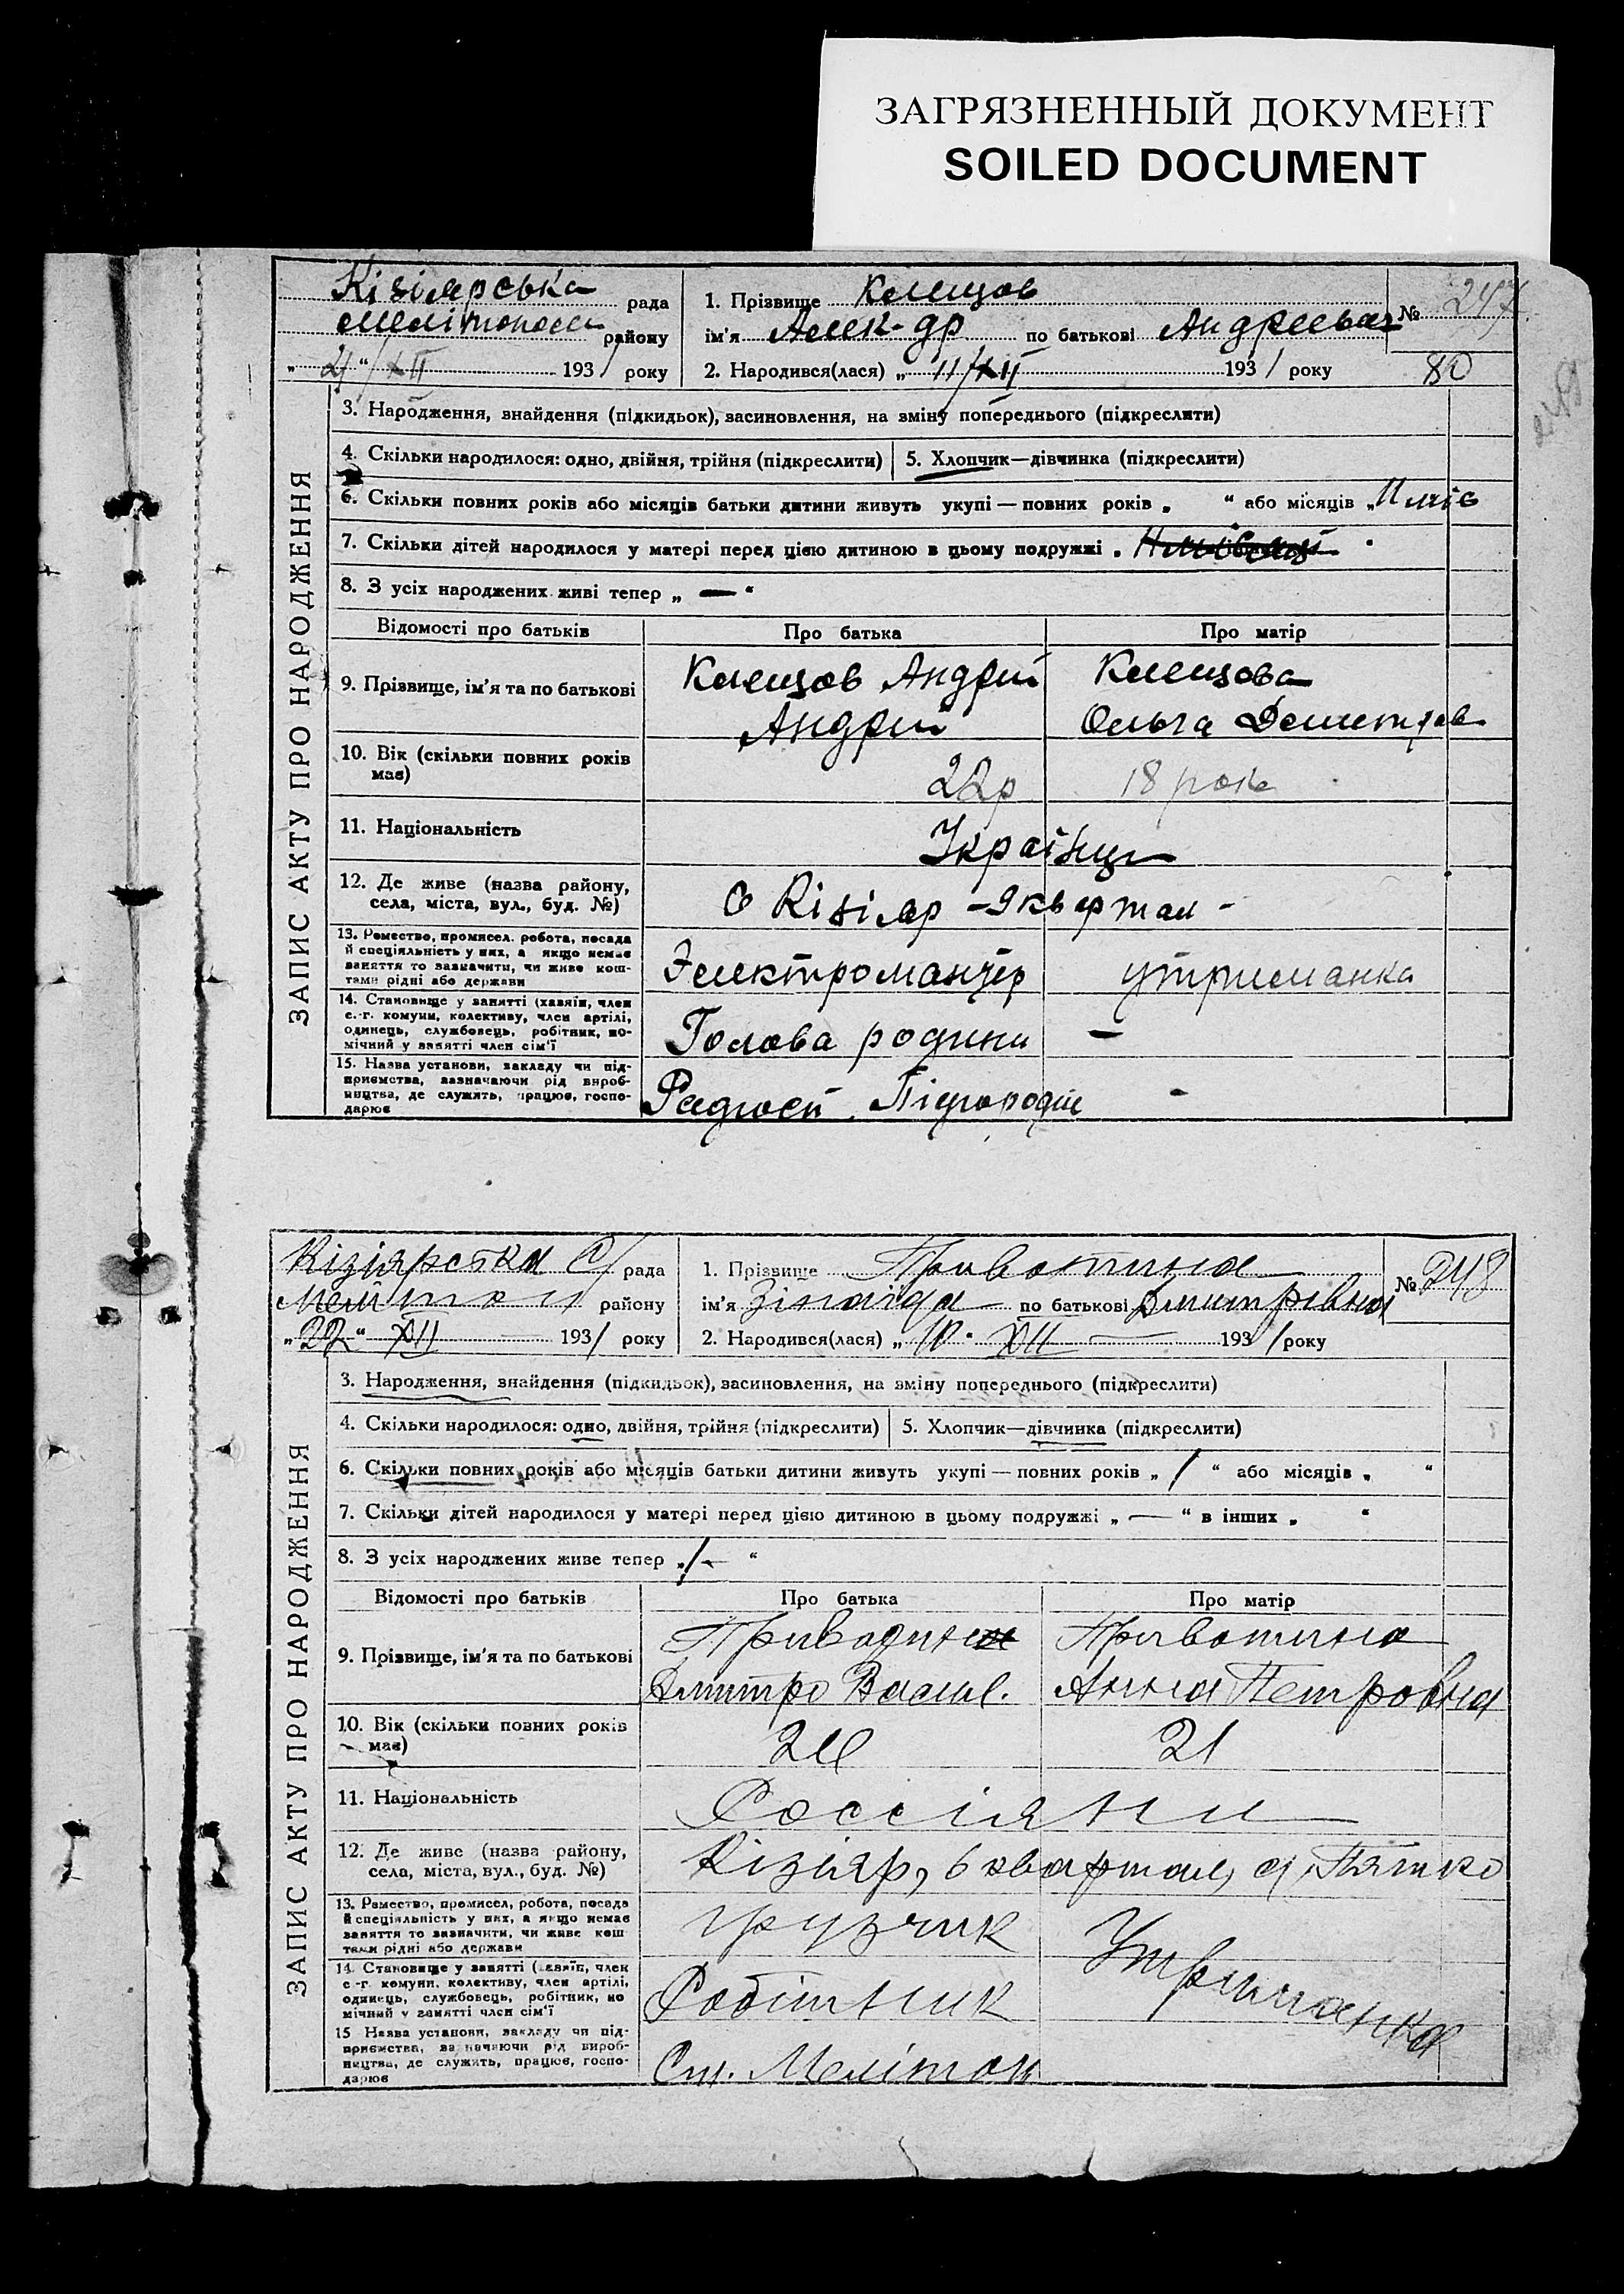 ЗАГРЯЗНЕННЫЙ ДОКУМЕНТ
SOILED DOCUMENT
ЗАПИС АКТУ ПРО НАРОДЖЕННЯ
Кізіярська рада
району
"21" XII 1931 року
1. Прізвище Клещов
№ 247
ім'я Алек-др по батькові
2. Народився(лася) „ 11/XII 1931 року
80
3. Народження, знайдення (підкидьок), засиновлення, на зміну попереднього (підкреслити)
4. Скільки народилося: одно, двійня, трійня (підкреслити) 5. Хлопчик—дівчинка (підкреслити)
6. Скільки повних років або місяців батьки дитини живуть укупі — повних років „ “ або місяців „
7. Скільки дітей народилося у матері перед цією дитиною в цьому подружжі „
8. З усіх народжених живі тепер „ — “
Відомості про батьків Про батька Про матір
9. Прізвище, ім'я та по батькові
Клещов Андрій
Андрій
Клещова
Ольга
10. Вік (скільки повних років має)
22р
18 років
11. Національність
Українці
12. Де живе (назва району,
села, міста, вул., буд. №)
с Кізіяр - 9 квартал -
13. Ремество, промисел, робота, посада
й спеціяльність у них, а якщо немає
заняття то зазначити, чи живе кош-
тами рідні або держави
Электромантёр утриманка
14. Становище у занятті (хазяїн, член
с.-г. комуни, колективу, член артілі,
одинець, службовець, робітник, по-
мічний у занятті член сім'ї
Голова родини —
15. Назва установи, закладу чи під-
приємства, зазначаючи рід вироб-
ництва, де служить, працює, госпо-
дарює
-
ЗАПИС АКТУ ПРО НАРОДЖЕННЯ
Кізіярська С/рада
району
"22" XII 1931 року
1. Прізвище Привотина
№ 248
ім'я Зінаіда по батькові Дмитрівна
2. Народився(лася) „ 10. XII — 1931 року
3. Народження, знайдення (підкидьок), засиновлення, на зміну попереднього (підкреслити)
4. Скільки народилося: одно, двійня, трійня (підкреслити) 5. Хлопчик—дівчинка (підкреслити)
6. Скільки повних років або місяців батьки дитини живуть укупі — повних років „ 1 “ або місяців „ “
7. Скільки дітей народилося у матері перед цією дитиною в цьому подружжі „ — “ в інших „ “
8. З усіх народжених живе тепер „ 1 — “
Відомості про батьків Про батька Про матір
9. Прізвище, ім'я та по батькові
Дмитро Васил.
Привотина
Анна Петровна
10. Вік (скільки повних років має)
21
11. Національність
Россіяни
12. Де живе (назва району,
села, міста, вул., буд. №)
Кізіяр, 6 квартал,
13. Ремество, промисел, робота, посада
й спеціяльність у них, а якщо немає
заняття то зазначити, чи живе кош-
тами рідні або держави
грузчик Утриманка
14. Становище у занятті (хазяїн, член
с-г. комуни, колективу, член артілі,
одинець, службовець, робітник, по-
мічний у занятті член сім'ї
Робітник
15 Назва установи, закладу чи під-
приємства, зазначаючи рід вироб-
ництва, де служить, працює, госпо-
дарює
Ст. Мелітоп